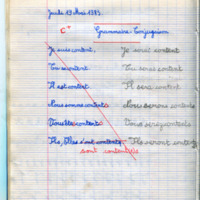 Jeudi 19 Mai 1983
C Grammaire-Conjugaison
Je suis content. Je serai content
Tu es content Tu seras content
Il est content Il sera content
Nous sommes contents Nous serons contents
Vous êtes contents Vous serez contents
Ils, Elles s'ont contents Ils seront contents
sont content(e)s